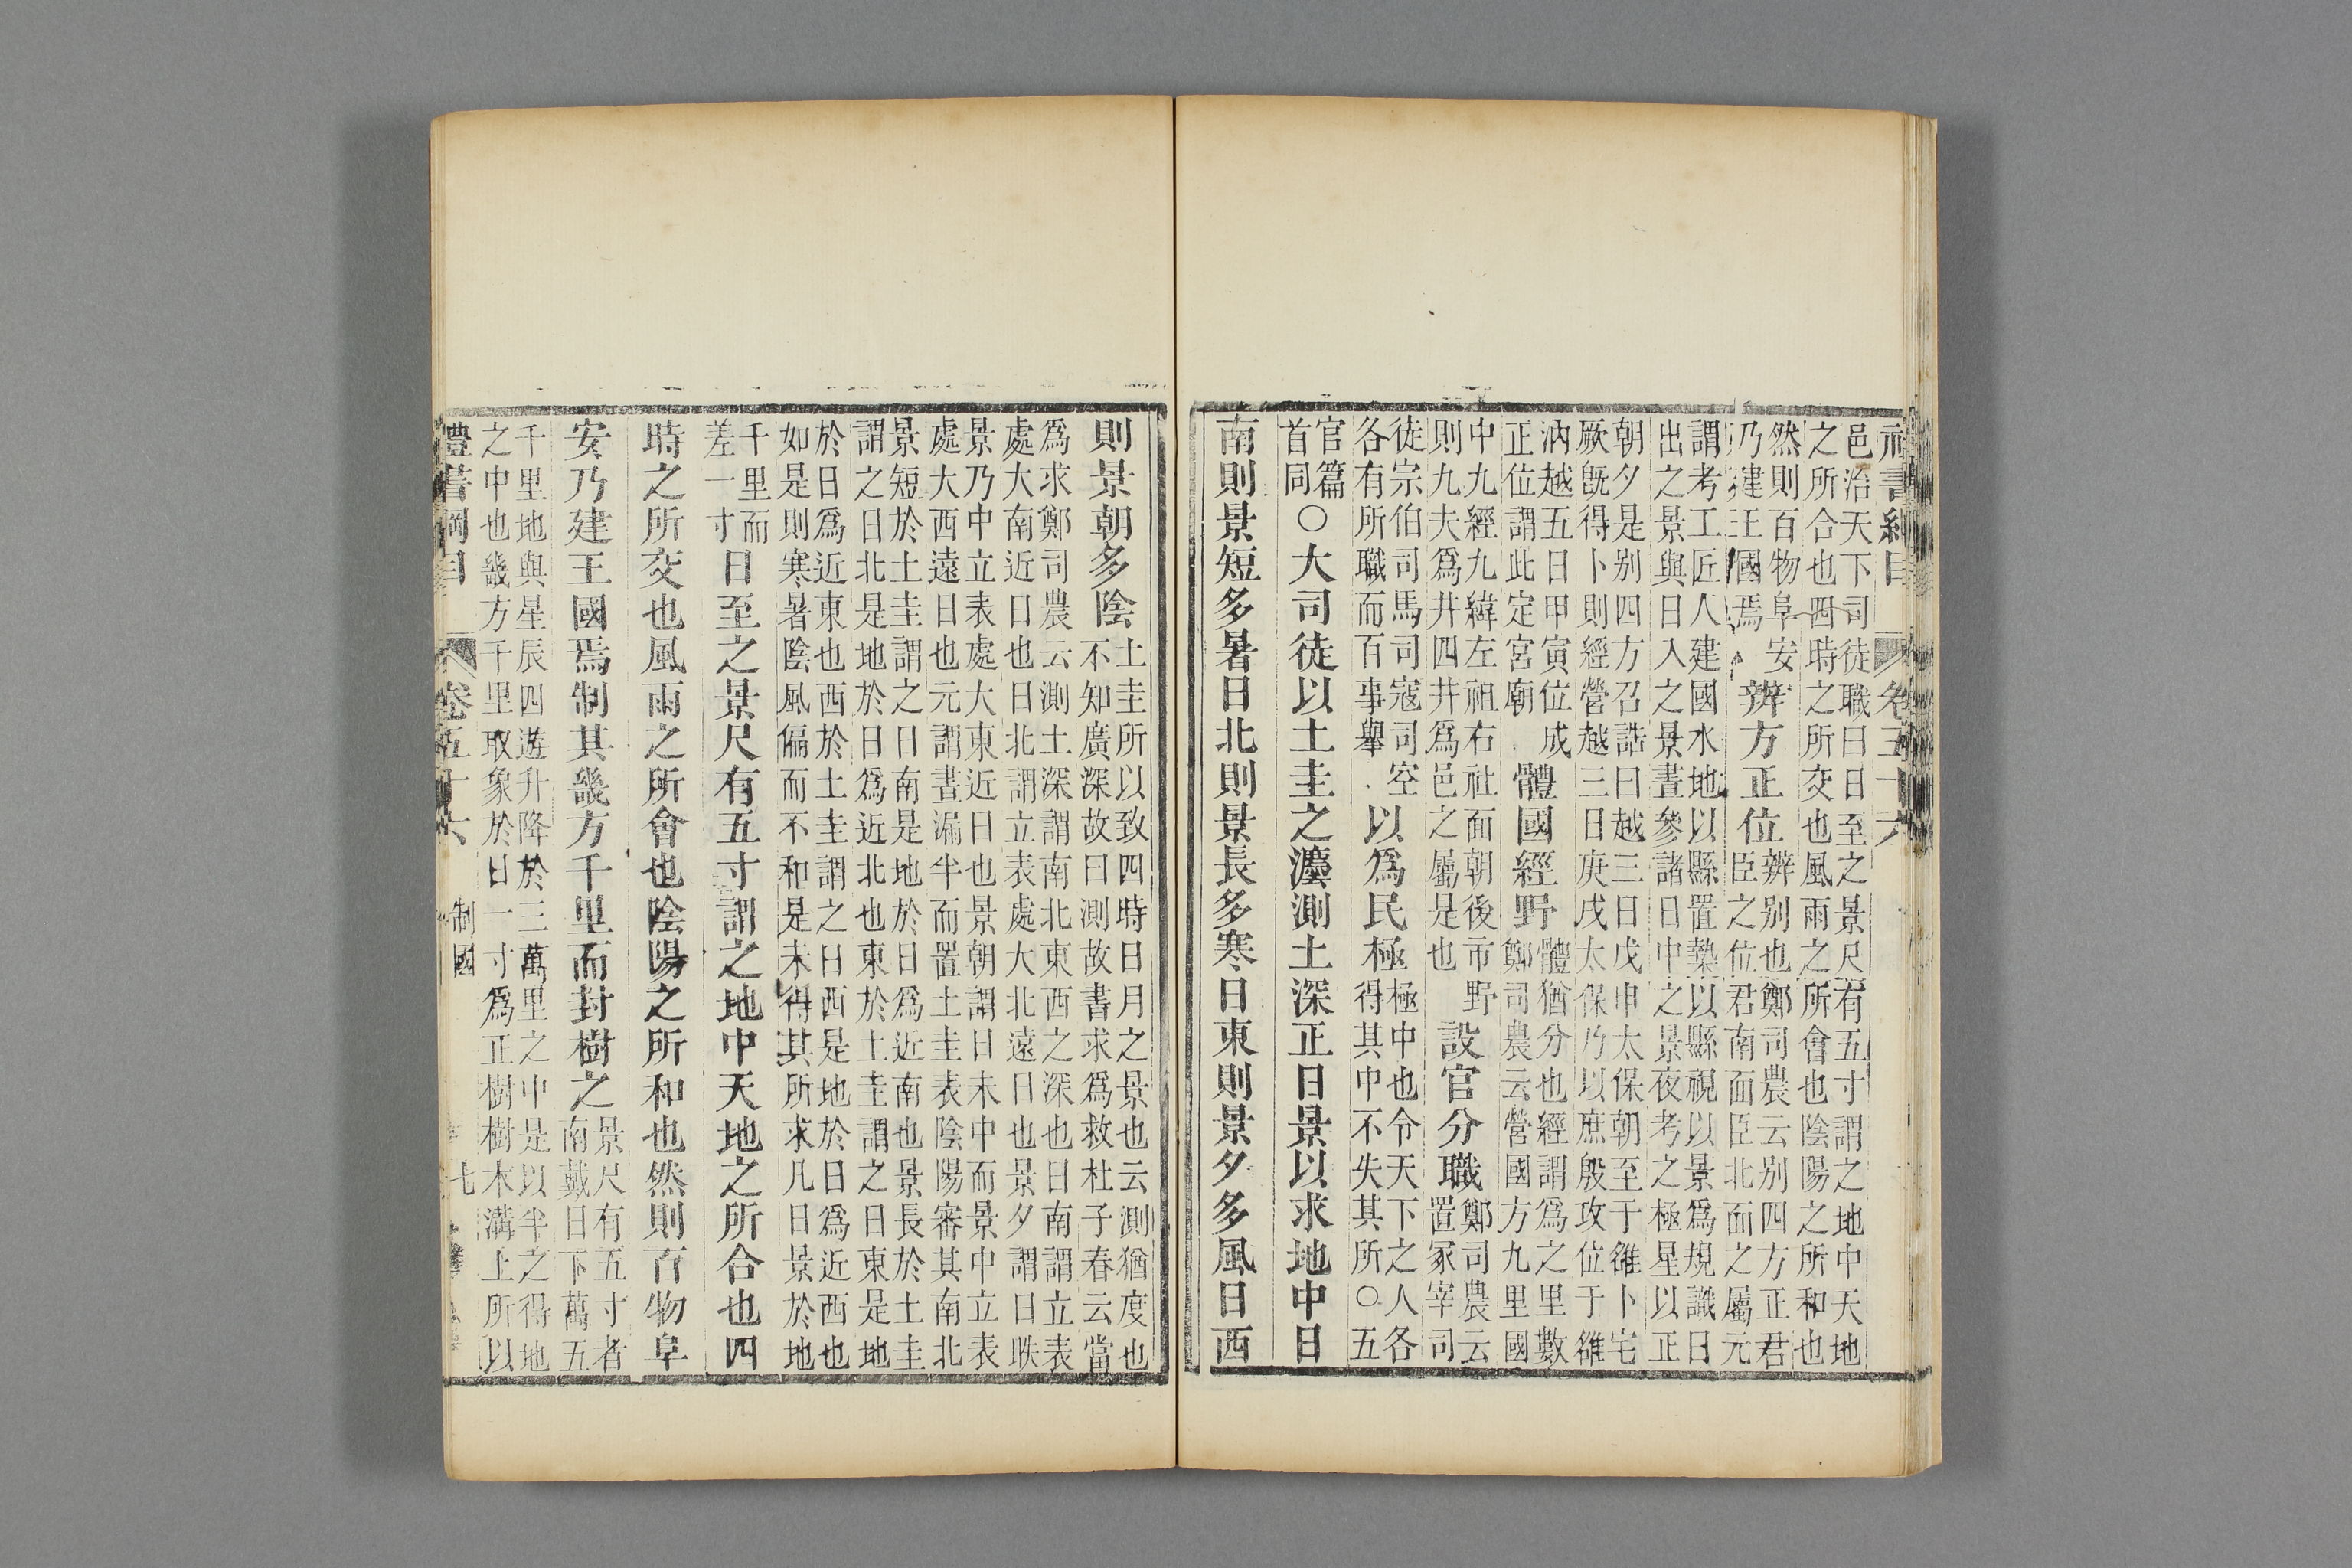 禮書綱目　卷五十六
邑治天下司徒職曰日至之景尺有五寸謂之地中天地
之所合也四時之所交也風雨之所會也陰陽之所和也
然則百物阜安
乃建王國焉
辨方正位
辨别也鄭司農云别四方正君
臣之位君南面臣北面之屬元
謂考工匠人建國水地以縣置槷以縣視以景爲規識日
出之景與日入之景晝參諸日中之景夜考之極星以正
朝夕是别四方召誥曰越三日戊申太保朝至于雒卜宅
厥既得卜則經營越三日庚戌太保乃以庶殷攻位于雒
汭越五日甲寅位成
正位謂此定宮廟
體國經野
體猶分也經謂爲之里數
鄭司農云營國方九里國
中九經九緯左祖右社面朝後市野
則九夫爲井四井爲邑之屬是也
設官分職
鄭司農云
置冢宰司
徒宗伯司馬司寇司空
各有所職而百事舉
以爲民極
極中也令天下之人各
得其中不失其所○五
官篇
首同
○大司徒以土圭之灋測土深正日景以求地中日
南則景短多暑日北則景長多寒日東則景夕多風日西
則景朝多陰
土圭所以致四時日月之景也云測猶度也
不知廣深故曰測故書求爲救杜子春云當
爲求鄭司農云測土深謂南北東西之深也日南謂立表
處大南近日也日北謂立表處大北遠日也景夕謂日昳
景乃中立表處大東近日也景朝謂日未中而景中立表
處大西遠日也元謂晝漏半而置土圭表陰陽審其南北
景短於土圭謂之日南是地於日爲近南也景長於土圭
謂之日北是地於日爲近北也東於土圭謂之日東是地
於日爲近東也西於土圭謂之日西是地於日爲近西也
如是則寒暑陰風偏而不和是未得其所求凡日景於地
千里而
差一寸
日至之景尺有五寸謂之地中天地之所合也四
時之所交也風雨之所會也陰陽之所和也然則百物阜
安乃建王國焉制其畿方千里而封樹之
景尺有五寸者
南戴日下萬五
千里地與星辰四遊升降於三萬里之中是以半之得地
之中也畿方千里取象於日一寸爲正樹樹木溝上所以
禮書綱目　卷五十六　制國　七